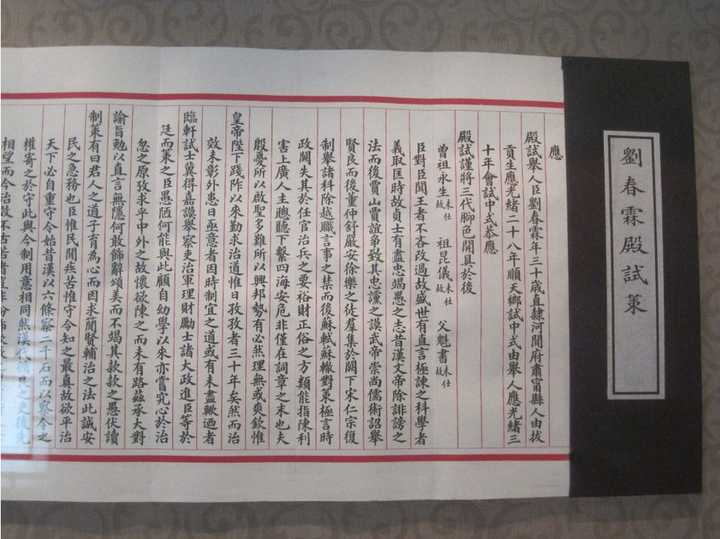 劉春霖殿試策
應
殿試舉人臣劉春霖年三十歲直隸河間府肅甯縣人由拔
貢生應光緒二十八年順天鄉試中式由舉人應光緒三
十年會試中式恭應
殿試謹將三代腳色開具於後
曾祖永生未仕故 祖昆儀未仕故 父魁書未仕故
臣對臣聞王者不吝改過故盛世有直言極諫之科學者
義取匡時故貢士有盡忠竭愚之志昔漢文帝除誹謗之
法而後賈山賈誼爭致其忠讜之謨武帝崇尚儒術詔舉
賢良而後董仲舒嚴安徐樂之徒羣集於闕下宋仁宗復
制舉諸科除越職言事之禁而後蘇軾蘇轍對策極言時
政闕失其於任官治兵之要裕財正俗之方類能指陳利
害上廣人主聰聽下繫四海安危非僅在詞章之末也夫
殷憂所以啟聖多難所以興邦勢有必然理無或爽欽惟
皇帝陛下踐阼以來勤求治道惟日孜孜者三十年矣然而治
效未彰外患日亟意者因時制宜之道或有未盡歟迺者
臨軒試士冀得嘉謨舉察吏治軍理財勵士諸大政進臣等於
廷而策之臣愚陋何能與此顧自幼學以來亦嘗究心於治
忽之原攷求乎中外之故懷欲陳之而未有路茲承大對
諭旨勉以直言無隱何敢飾辭頌美而不竭其款款之愚伏讀
制策有曰君人之道子育為心而因求簡賢輔治之法此誠安
民之急務也臣惟民間疾苦惟守令知之最真故欲平治
天下必自重守令始昔漢以六條察二千石而以察令之
權寄之於守此與今制用意相同然漢代循吏之史後先
相望而今治效不古若者